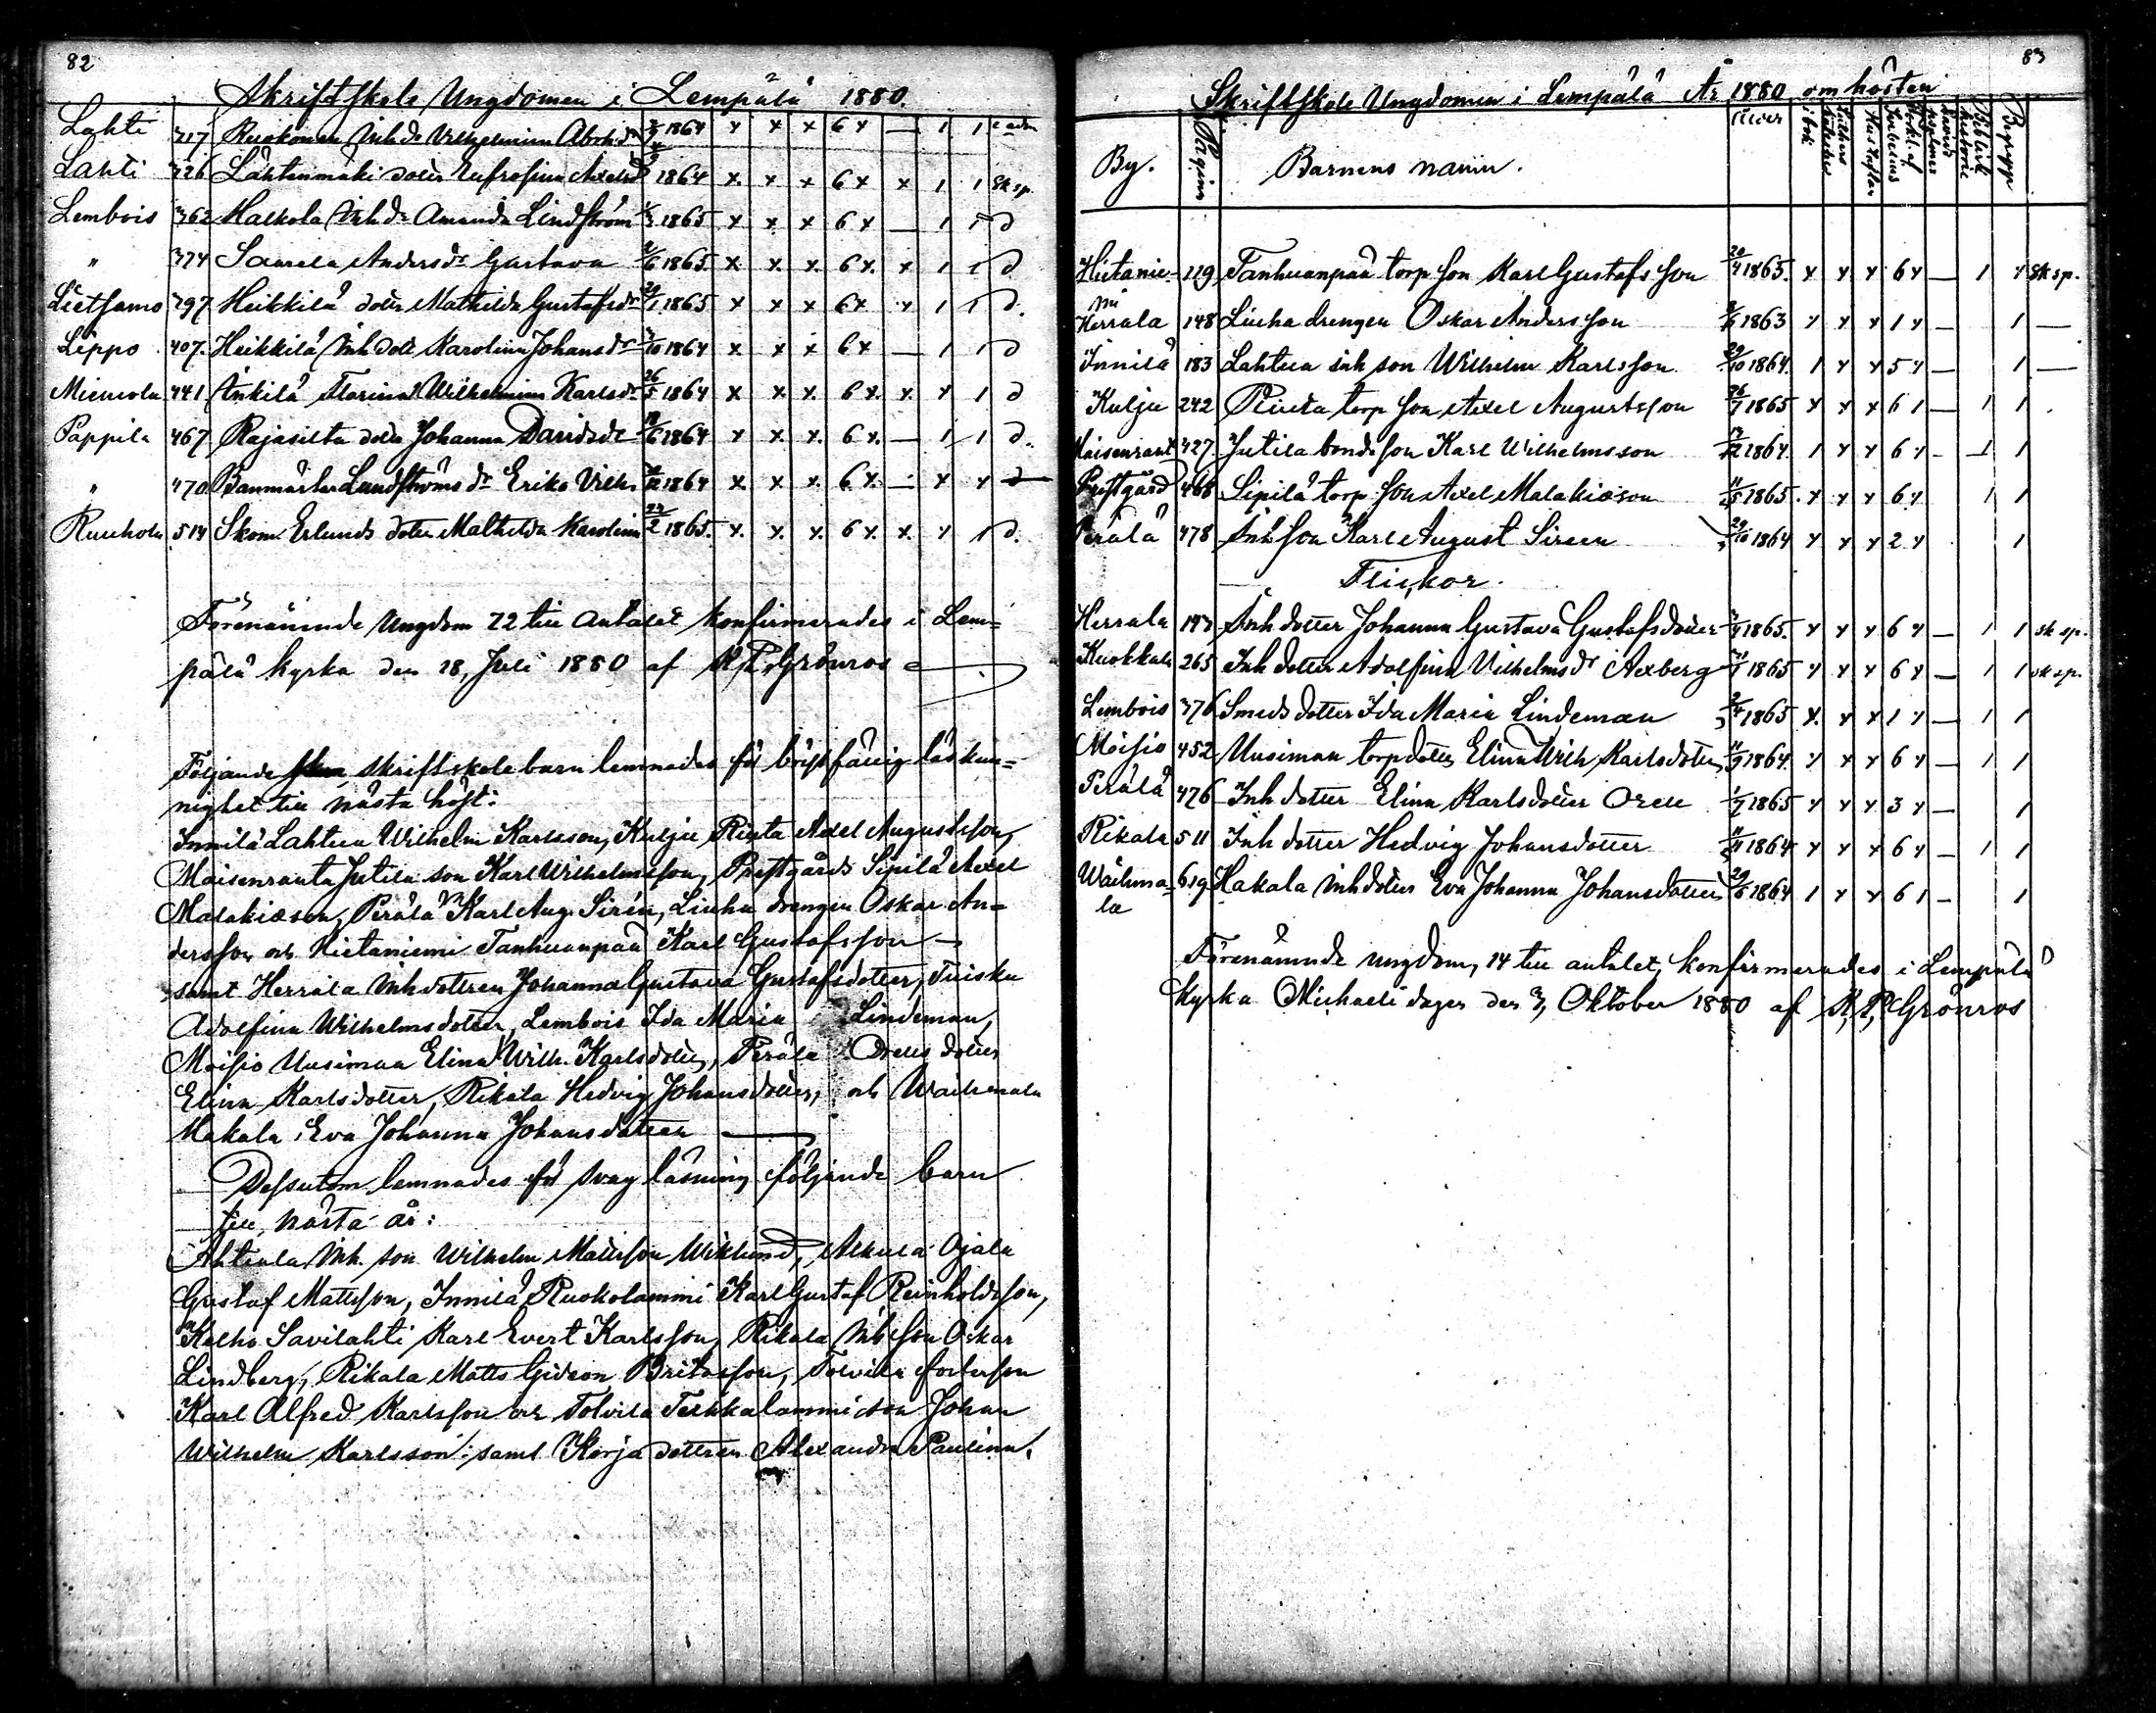 82
Skriftskole Ungdomen i Lempälä 1880.
Lahti 317 Ruokonen Inh dr Vilhelmina Abrah dr 1864 x x x 6 x — 1 1
Lahti 326 Lähteenmäki dotter Eufrosina Axelsd 1864 x x x 6 x x 1 1 Sk sp.
Lembois 362 Halkola Inh dr Amanda Lindström 1865 x x x 6 x — 1 1 d
" 374 Saarela Andersdr Gustava 1865 x x x 6 x x 1 1 d
Lietsamo 397 Heikkilä dotter Mathilda Gustafsdr 29/1 1865 x x x 6 x x 1 1 d.
Lippo 407. Heikkilä Inh dott Karolina Johansdr 1864 x x x 6 x — 1 1 d
Mienola 441 Ankilä Starina Wilhelmina Karlsdr 26/5 1864 x x x 6 x x x 1 d
Pappila 467 Rajasilta dotter Johanna Davidsdr 1864 x x x 6 x — 1 1 d.
" 470 Banmäster Lundströms dr Erika Vilh. 1864 x x x 6 x — x x d
Ruuhola 514 Skom. Erlunds dotter Mathilda Karolina 22/2 1865. x x x 6 x x x 1 d.
Förenämnde Ungdom 72 till antalet konfirmerades i Lem=
pälä kyrka den 18, Juli 1880 af K. P. Grönroos
Följande skriftskolebarn lemnades för bristfällig läskun=
nighet till nästa höst:
Innilä Lahtua Wilhelm Karlsson, Kulju Rinta Axel Augustsson,
Moisenranta Jutila son Karl Wilhelmsson, Prestgårds Sipilä Axel
Malakiæson, Perälä Karl Aug. Sirén, Liuha drengen Oskar An=
dersson och Hietaniemi Tanhuanpää Karl Gustafsson —
samt Herrala Inh dottren Johanna Gustava Gustafsdotter,
Adolfina Wilhelmsdotter, Lembois Ida Maria Lindeman,
Moisio Uusimaa Elina Wilh. Karlsdotter, Perälä Orells dotter
Elina Karlsdotter, Rikala Hedvig Johansdotter, och Waihmala
Hakala Eva Johanna Johansdotter
Dessutom lemnades för svag läsning följande barn
till nästa år:
Ahtiala Inh. son Wilhelm Mattsson Wiklund, Alkula Ojala
Gustaf Mattsson, Innilä Ruokolammi Karl Gustaf Reinholdsson,
Kelho Savilahti Karl Evert Karlsson, Rikala Inh son Oskar
Lindberg, Rikala Matts Gideon Britasson, Tolvila fosterson
Karl Alfred Karlsson och Tolvila son Johan
Wilhelm Karlsson: samt Korja dottren Alexandra Paulina.
83
Skriftskole Ungdomen i Lempälä År 1880 om hösten
By. Pagina Barnens namn. I bok Hus taflan Begrepp
Hietanie- 119 Tanhuanpää torp son Karl Gustafsson 20/4 1865. x x x 6 x — 1 x Sk sp.
mi
Herrala 148 Liuha drengen Oskar Andersson 1863 x x x 1 x — 1 —
Innilä 183 Lahtua inh son Wilhelm Karlsson 29/10 1864. 1 x x 5 x — 1 —
Kulju 242 Rinta torp son Axel Augustsson 26/7 1865 x x x 6 1 — 1 1
Moisenrant 427 Jutila bonds son Karl Wilhelmsson 1864. 1 x x 6 x — 1 1
Prestgård 468 Sipilä torp son Axel Malakiæson 11/5 1865. x x x 6 x 1 1
Perälä 478 Inh son Karl August Sireen 29/10 1864 x x x 2 x 1
Flickor.
Herrala 143 Inh dotter Johanna Gustava Gustafsdotter 1865. x x x 6 x — 1 1 sk sp.
Kuokkala 265 Inh dotter Adolfina Vilhelmsdr Axberg 1865 x x x 6 x — 1 1 sk sp.
Lembois 376 Smeds dotter Ida Maria Lindeman 1865 x. x x 1 x — 1 1
Moisio 452 Uusimaa torp dotter Elina Wilh Karlsdotter 11/9 1864. x x x 6 x — 1 1
Perälä 476 Inh dotter Elina Karlsdotter Orell 1865 x x x 3 x — 1
Rikala 511 Inh dotter Hedvig Johansdotter 1864 x x x 6 x — 1 1
Waihma- 619 Hakala Inh dotter Eva Johanna Johansdotter 29/6 1864 1 x x 6 1 — 1
la
Förenämnde ungdom, 14 till antalet, konfirmerades i Lempälä
kyrka Michaeli dagen den 3, Oktober 1880 af K. P. Grönroos